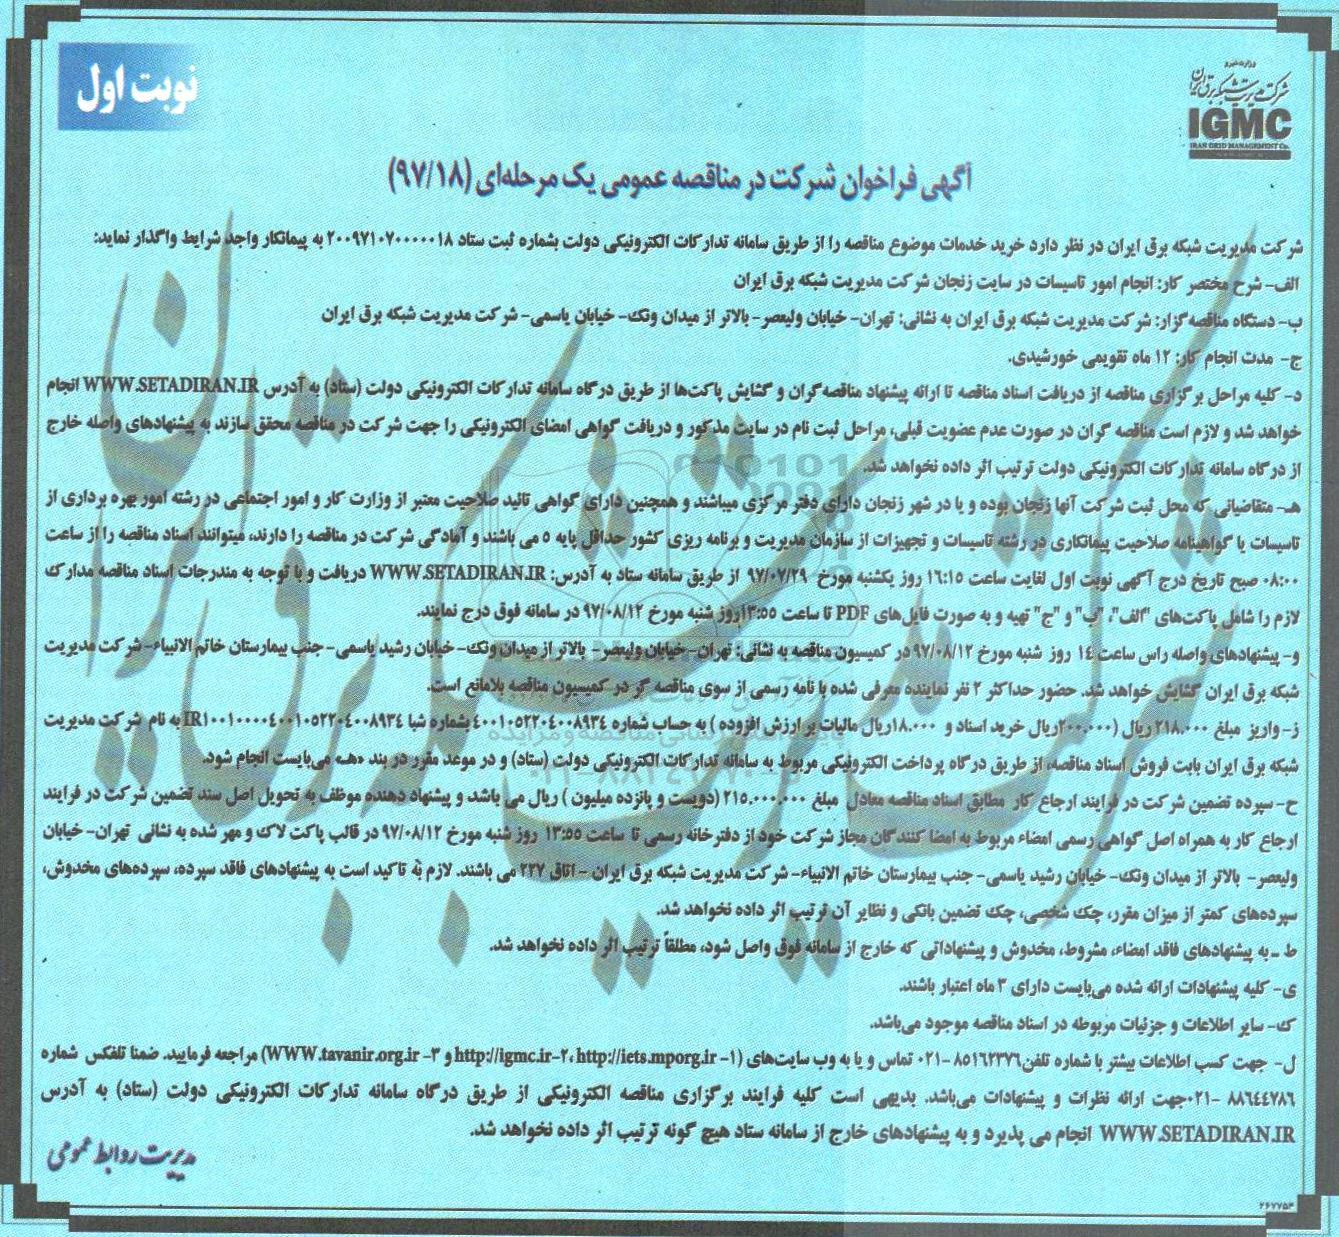 وزارت نیرو
شرکت مدیریت شبکه برق ایران
IGMC
IRAN GRID MANAGEMENT Co.
نوبت اول
آگهی فراخوان شرکت در مناقصه عمومی یک مرحله‌ای (۹۷/۱۸)
شرکت مدیریت شبکه برق ایران در نظر دارد خرید خدمات موضوع مناقصه را از طریق سامانه تدارکات الکترونیکی دولت بشماره ثبت ستاد ۲۰۰۹۷۱۰۷۰۰۰۰۰۱۸ به پیمانکار واجد شرایط واگذار نماید:
الف- شرح مختصر کار: انجام امور تاسیسات در سایت زنجان شرکت مدیریت شبکه برق ایران
ب- دستگاه مناقصه‌گزار: شرکت مدیریت شبکه برق ایران به نشانی: تهران- خیابان ولیعصر- بالاتر از میدان ونک- خیابان یاسمی- شرکت مدیریت شبکه برق ایران
ج- مدت انجام کار: ۱۲ ماه تقویمی خورشیدی.
د- کلیه مراحل برگزاری مناقصه از دریافت اسناد مناقصه تا ارائه پیشنهاد مناقصه‌گران و گشایش پاکت‌ها از طریق درگاه سامانه تدارکات الکترونیکی دولت (ستاد) به آدرس WWW.SETADIRAN.IR انجام
خواهد شد و لازم است مناقصه گران در صورت عدم عضویت قبلی، مراحل ثبت نام در سایت مذکور و دریافت گواهی امضای الکترونیکی را جهت شرکت در مناقصه محقق سازند به پیشنهادهای واصله خارج
از درگاه سامانه تدارکات الکترونیکی دولت ترتیب اثر داده نخواهد شد.
هـ- متقاضیانی که محل ثبت شرکت آنها زنجان بوده و یا در شهر زنجان دارای دفتر مرکزی میباشند و همچنین دارای گواهی تائید صلاحیت معتبر از وزارت کار و امور اجتماعی در رشته امور بهره برداری از
تاسیسات یا گواهینامه صلاحیت پیمانکاری در رشته تاسیسات و تجهیزات از سازمان مدیریت و برنامه ریزی کشور حداقل پایه ۵ می باشند و آمادگی شرکت در مناقصه را دارند، میتوانند اسناد مناقصه را از ساعت
۰۸:۰۰ صبح تاریخ درج آگهی نوبت اول لغایت ساعت ۱۶:۱۵ روز یکشنبه مورخ ۹۷/۰۷/۲۹ از طریق سامانه ستاد به آدرس: WWW.SETADIRAN.IR دریافت و با توجه به مندرجات اسناد مناقصه مدارک
لازم را شامل پاکت‌های "الف"، "ب" و "ج" تهیه و به صورت فایل‌های PDF تا ساعت ۱۳:۵۵روز شنبه مورخ ۹۷/۰۸/۱۲ در سامانه فوق درج نمایند.
و- پیشنهادهای واصله راس ساعت ۱۴ روز شنبه مورخ ۹۷/۰۸/۱۲ در کمیسیون مناقصه به نشانی: تهران- خیابان ولیعصر- بالاتر از میدان ونک- خیابان رشید یاسمی- جنب بیمارستان خاتم الانبیاء- شرکت مدیریت
شبکه برق ایران گشایش خواهد شد. حضور حداکثر ۲ نفر نماینده معرفی شده با نامه رسمی از سوی مناقصه گر در کمیسیون مناقصه بلامانع است.
ز- واریز مبلغ ۲۱۸.۰۰۰ ریال (۲۰۰.۰۰۰ریال خرید اسناد و ۱۸.۰۰۰ریال مالیات بر ارزش افزوده ) به حساب شماره ۴۰۰۱۰۵۲۲۰۴۰۰۸۹۳۴ بشماره شبا IR۱۰۰۱۰۰۰۰۴۰۰۱۰۵۲۲۰۴۰۰۸۹۳۴ به نام شرکت مدیریت
شبکه برق ایران بابت فروش اسناد مناقصه، از طریق درگاه پرداخت الکترونیکی مربوط به سامانه تدارکات الکترونیکی دولت (ستاد) و در موعد مقرر در بند «هـ» می‌بایست انجام شود.
ح- سپرده تضمین شرکت در فرایند ارجاع کار مطابق اسناد مناقصه معادل مبلغ ۲۱۵.۰۰۰.۰۰۰ (دویست و پانزده میلیون ) ریال می باشد و پیشنهاد دهنده موظف به تحویل اصل سند تضمین شرکت در فرایند
ارجاع کار به همراه اصل گواهی رسمی امضاء مربوط به امضا کنندگان مجاز شرکت خود از دفترخانه رسمی تا ساعت ۱۳:۵۵ روز شنبه مورخ ۹۷/۰۸/۱۲ در قالب پاکت لاک و مهر شده به نشانی تهران- خیابان
ولیعصر- بالاتر از میدان ونک- خیابان رشید یاسمی- جنب بیمارستان خاتم الانبیاء- شرکت مدیریت شبکه برق ایران - اتاق ۲۲۷ می باشند. لازم به تاکید است به پیشنهادهای فاقد سپرده، سپرده‌های مخدوش،
سپرده‌های کمتر از میزان مقرر، چک شخصی، چک تضمین بانکی و نظایر آن ترتیب اثر داده نخواهد شد.
ط ـ به پیشنهادهای فاقد امضاء، مشروط، مخدوش و پیشنهاداتی که خارج از سامانه فوق واصل شود، مطلقاً ترتیب اثر داده نخواهد شد.
ی- کلیه پیشنهادات ارائه شده می‌بایست دارای ۳ ماه اعتبار باشند.
ک- سایر اطلاعات و جزئیات مربوطه در اسناد مناقصه موجود می‌باشد.
ل- جهت کسب اطلاعات بیشتر با شماره تلفن۸۵۱۶۲۳۷۶-۰۲۱ تماس و یا به وب سایت‌های (۱- http://iets.mporg.ir ،۲-http://igmc.ir و ۳- WWW.tavanir.org.ir) مراجعه فرمایید. ضمنا تلفکس شماره
۸۸۶۴۴۷۸۶-۰۲۱جهت ارائه نظرات و پیشنهادات می‌باشد. بدیهی است کلیه فرایند برگزاری مناقصه الکترونیکی از طریق درگاه سامانه تدارکات الکترونیکی دولت (ستاد) به آدرس
WWW.SETADIRAN.IR انجام می پذیرد و به پیشنهادهای خارج از سامانه ستاد هیچ گونه ترتیب اثر داده نخواهد شد.
مدیریت روابط عمومی
۲۶۷۷۵۴